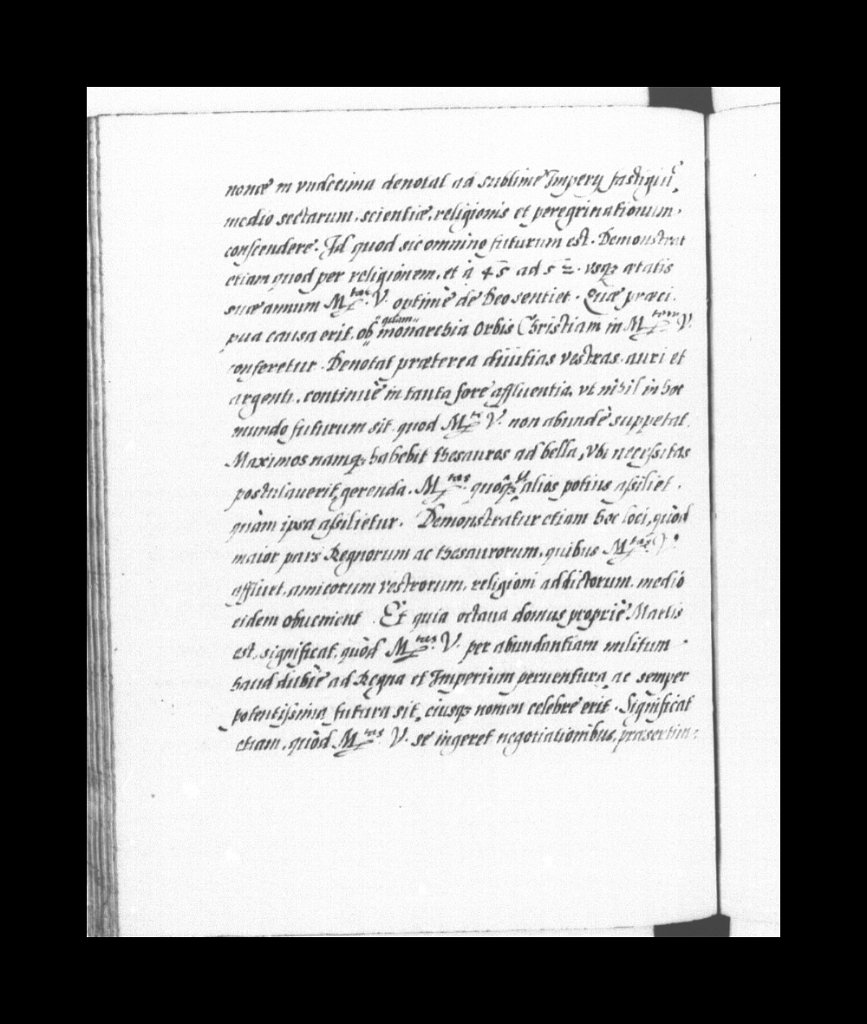 nonæ in vndecima denotat ad sublime Impery fastigiũ,
medio sectarum, scientiæ, religionis et peregrinationum,
conscendere. Id quod sic omnino futurum est. Demonstrat
etiam quod per religionem, et à 45 ad 52 vsq; ætatis
suæ annum M.tas V. optimè de Deo sentiet. Quæ præci,
pua causa erit, ob quam monarchia Orbis Christiani in M.tem V.
conferetur. Denotat præterea diuitias vestras, auri et
argenti, continuè in tanta fore affluentia, vt nihil in hoc
mundo futurum sit, quod M.ti V. non abundè suppetat.
Maximos namq; habebit thesauros ad bella, vbi necessitas
postulauerit, gerenda. M.tas quoq; V. alios potius assiliet,
quàm ipsa assilietur. Demonstratur etiam hoc loci, quòd
maior pars Regnorum ac thesaurorum, quibus M.tas V.
affluet, amicorum vestrorum, religioni addictorum, medio
eidem obuenient. Et quia octaua domus propriè Martis
est, significat, quòd M.tas V. per abundantiam militum
haud dubiè ad Regna et Imperium peruentura, ac semper
potentissima futura sit, eiusq; nomen celebre erit. Significat
etiam, quòd M.tas V. se ingeret negotiationibus, præsertim